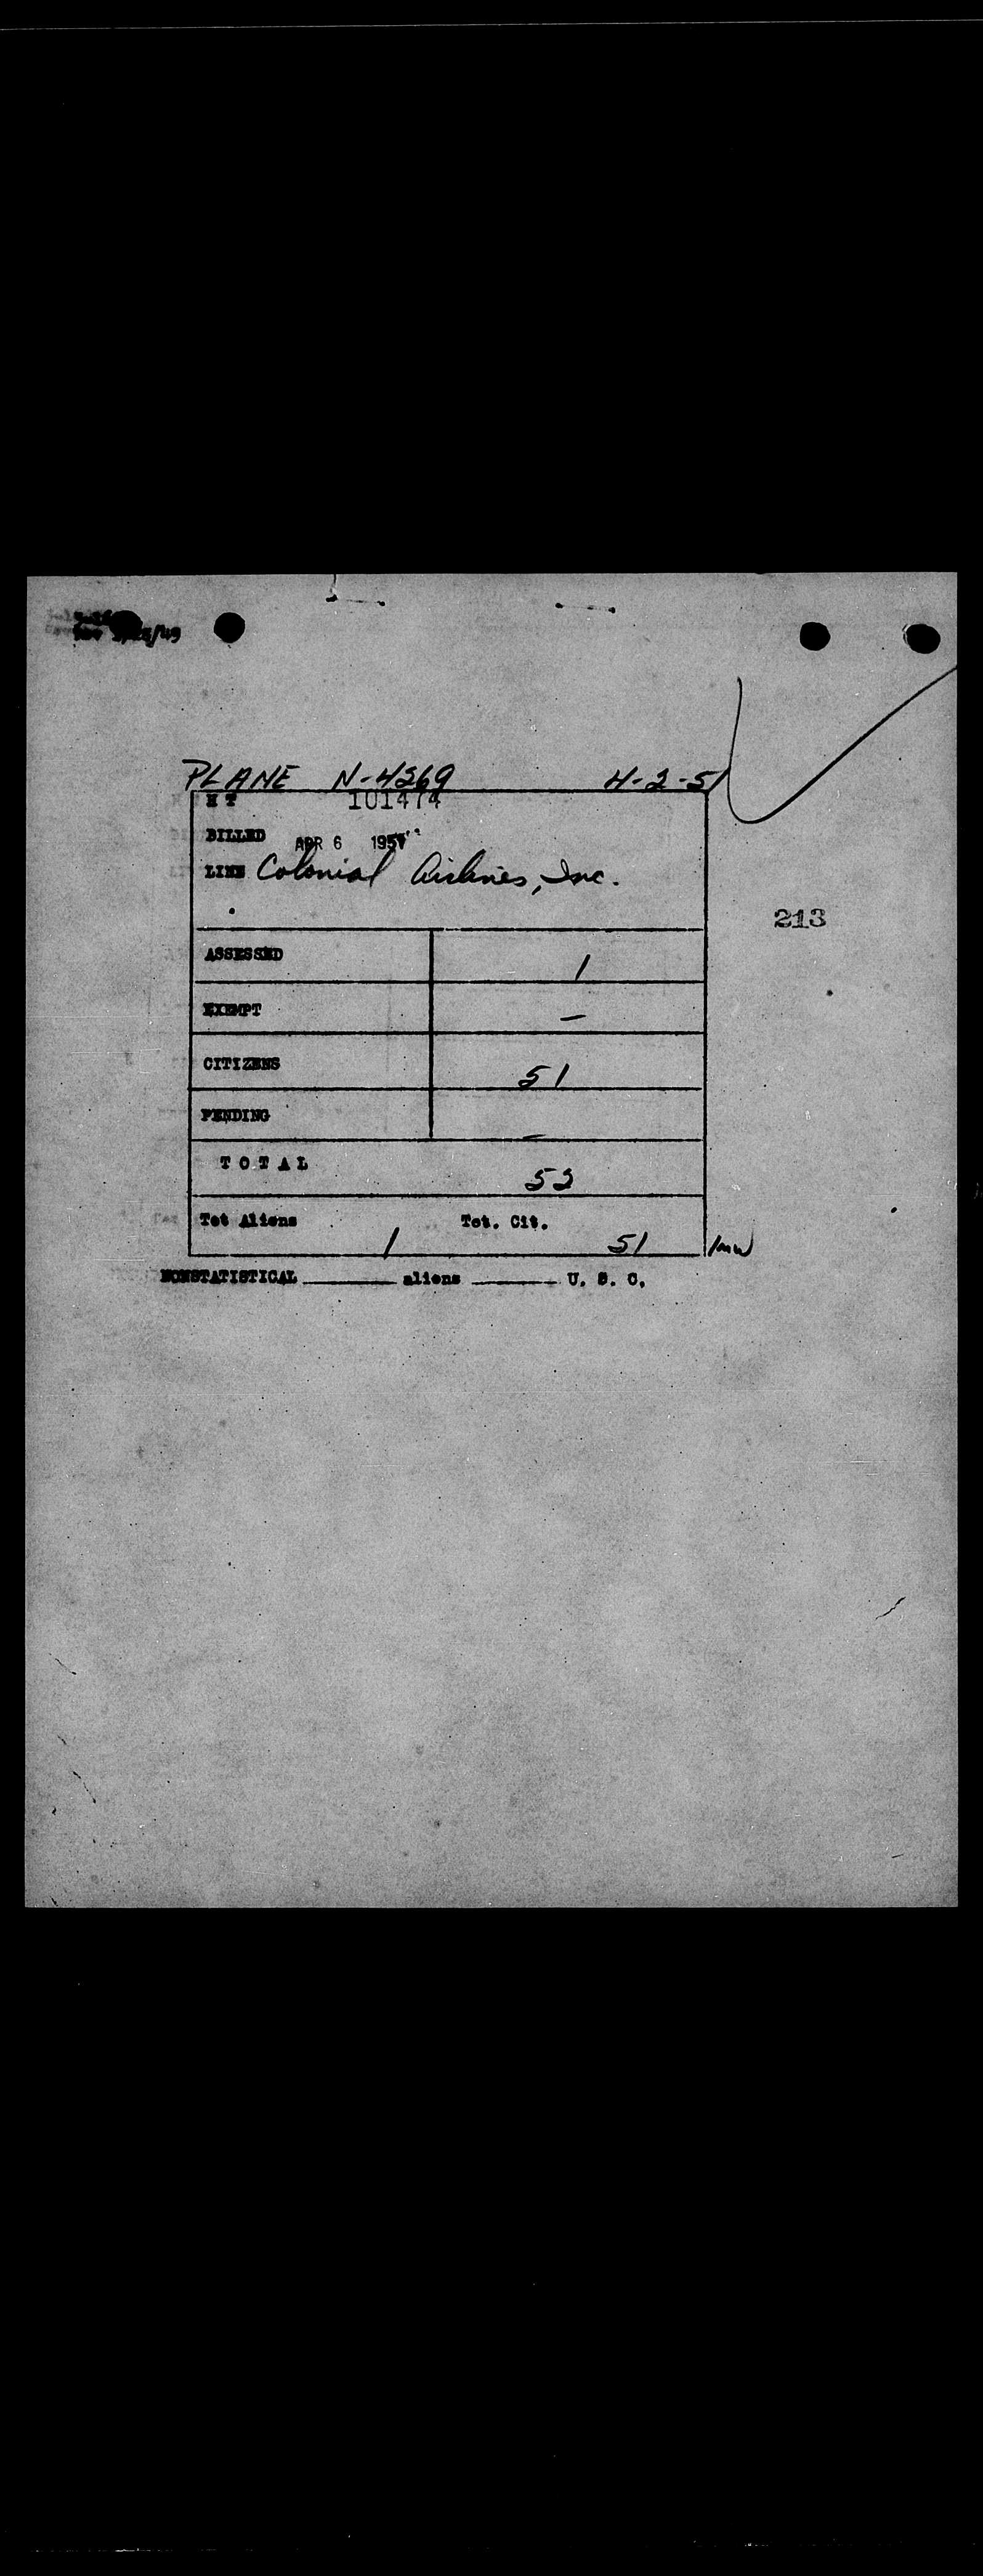 PLANE N-4269 4-2-51
H T 101474
BILLED APR 6 1951
LINE Colonial Airlines, Inc.
213
ASSESSED 1
EXEMPT —
CITIZENS 51
PENDING —
TOTAL 52
Tot Aliens 1 Tot. Cit. 51
NONSTATISTICAL ________ aliens ________ U. S. C.